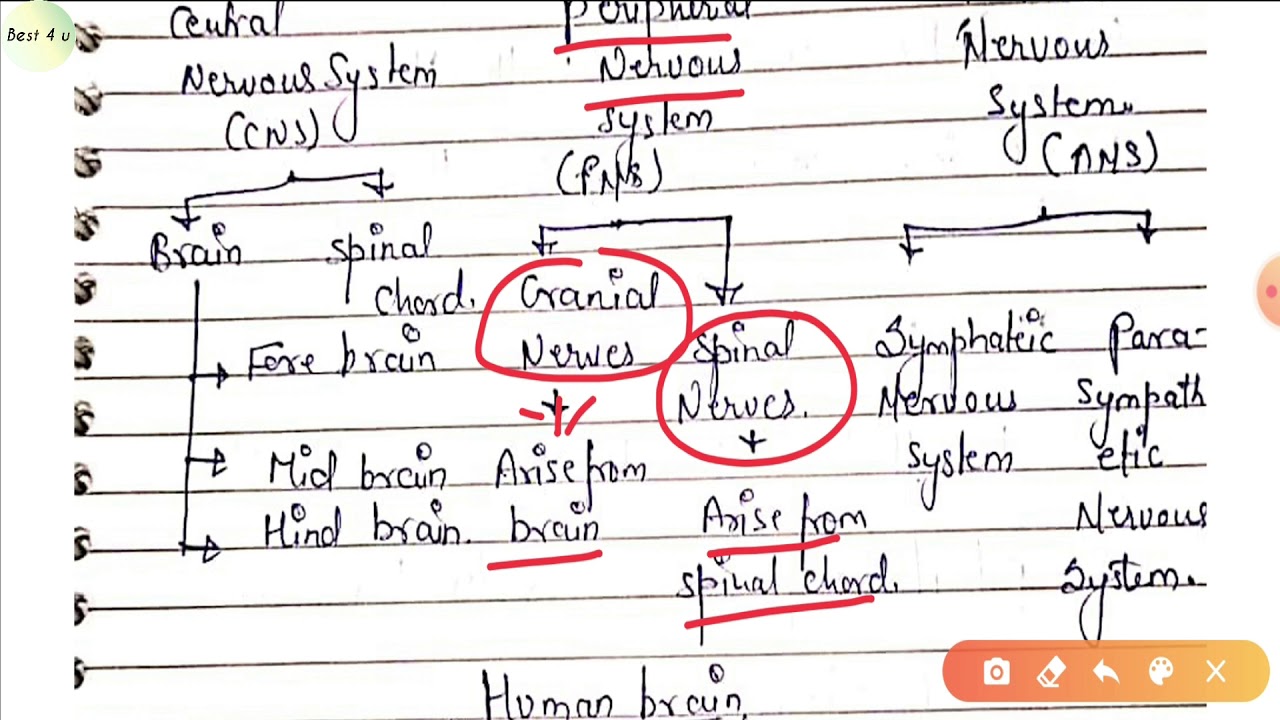 Best 4 u
Central
Nervous System
(CNS)
Brain
Spinal
Chord.
Fore brain
Mid brain
Hind brain.
Peripheral
Nervous
System
(PNS)
Cranial
Nerves
Arise from
brain
Spinal
Nerves.
Arise from
spinal chord.
Nervous
System.
(ANS)
Symphateic
Nervous
System
Para-
Sympath
etic
Nervous
System.
Human brain